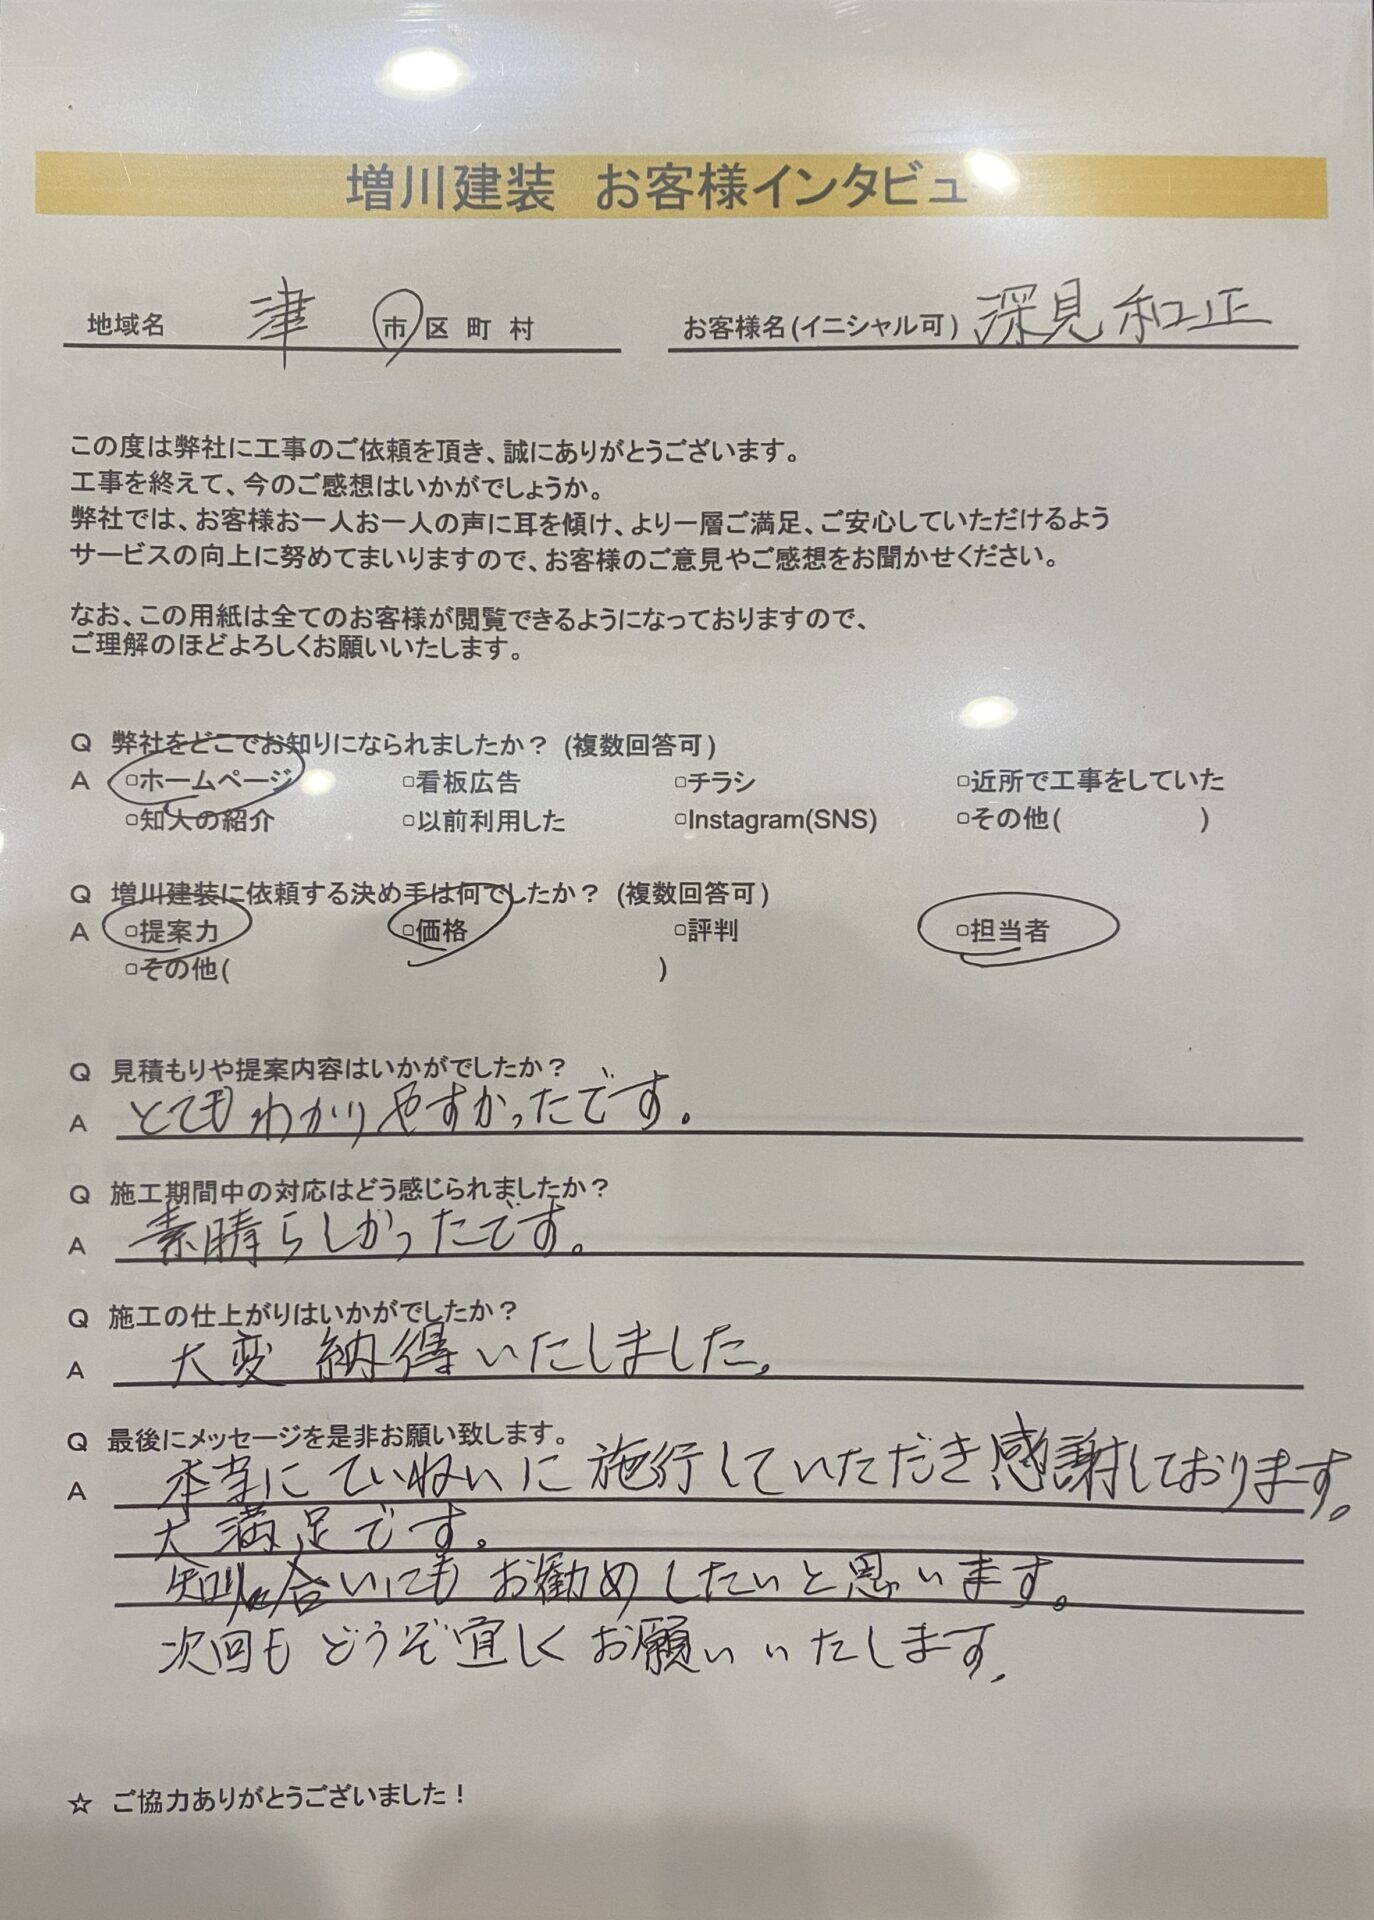 増川建装　お客様インタビュー
地域名　津　市 区 町 村　お客様名(イニシャル可) 深見 和正
この度は弊社に工事のご依頼を頂き、誠にありがとうございます。
工事を終えて、今のご感想はいかがでしょうか。
弊社では、お客様お一人お一人の声に耳を傾け、より一層ご満足、ご安心していただけるよう
サービスの向上に努めてまいりますので、お客様のご意見やご感想をお聞かせください。
なお、この用紙は全てのお客様が閲覧できるようになっておりますので、
ご理解のほどよろしくお願いいたします。
Q 弊社をどこでお知りになられましたか？ (複数回答可)
A □ホームページ　□看板広告　□チラシ　□近所で工事をしていた
□知人の紹介　□以前利用した　□Instagram(SNS)　□その他(　　　)
Q 増川建装に依頼する決め手は何でしたか？ (複数回答可)
A □提案力　□価格　□評判　□担当者
□その他(　　　)
Q 見積もりや提案内容はいかがでしたか？
A とてもわかりやすかったです。
Q 施工期間中の対応はどう感じられましたか？
A 素晴らしかったです。
Q 施工の仕上がりはいかがでしたか？
A 大変納得いたしました。
Q 最後にメッセージを是非お願い致します。
A 本当にていねいに施行していただき感謝しております。
大満足です。
知り合いにもお勧めしたいと思います。
次回もどうぞ宜しくお願いいたします。
☆ ご協力ありがとうございました！